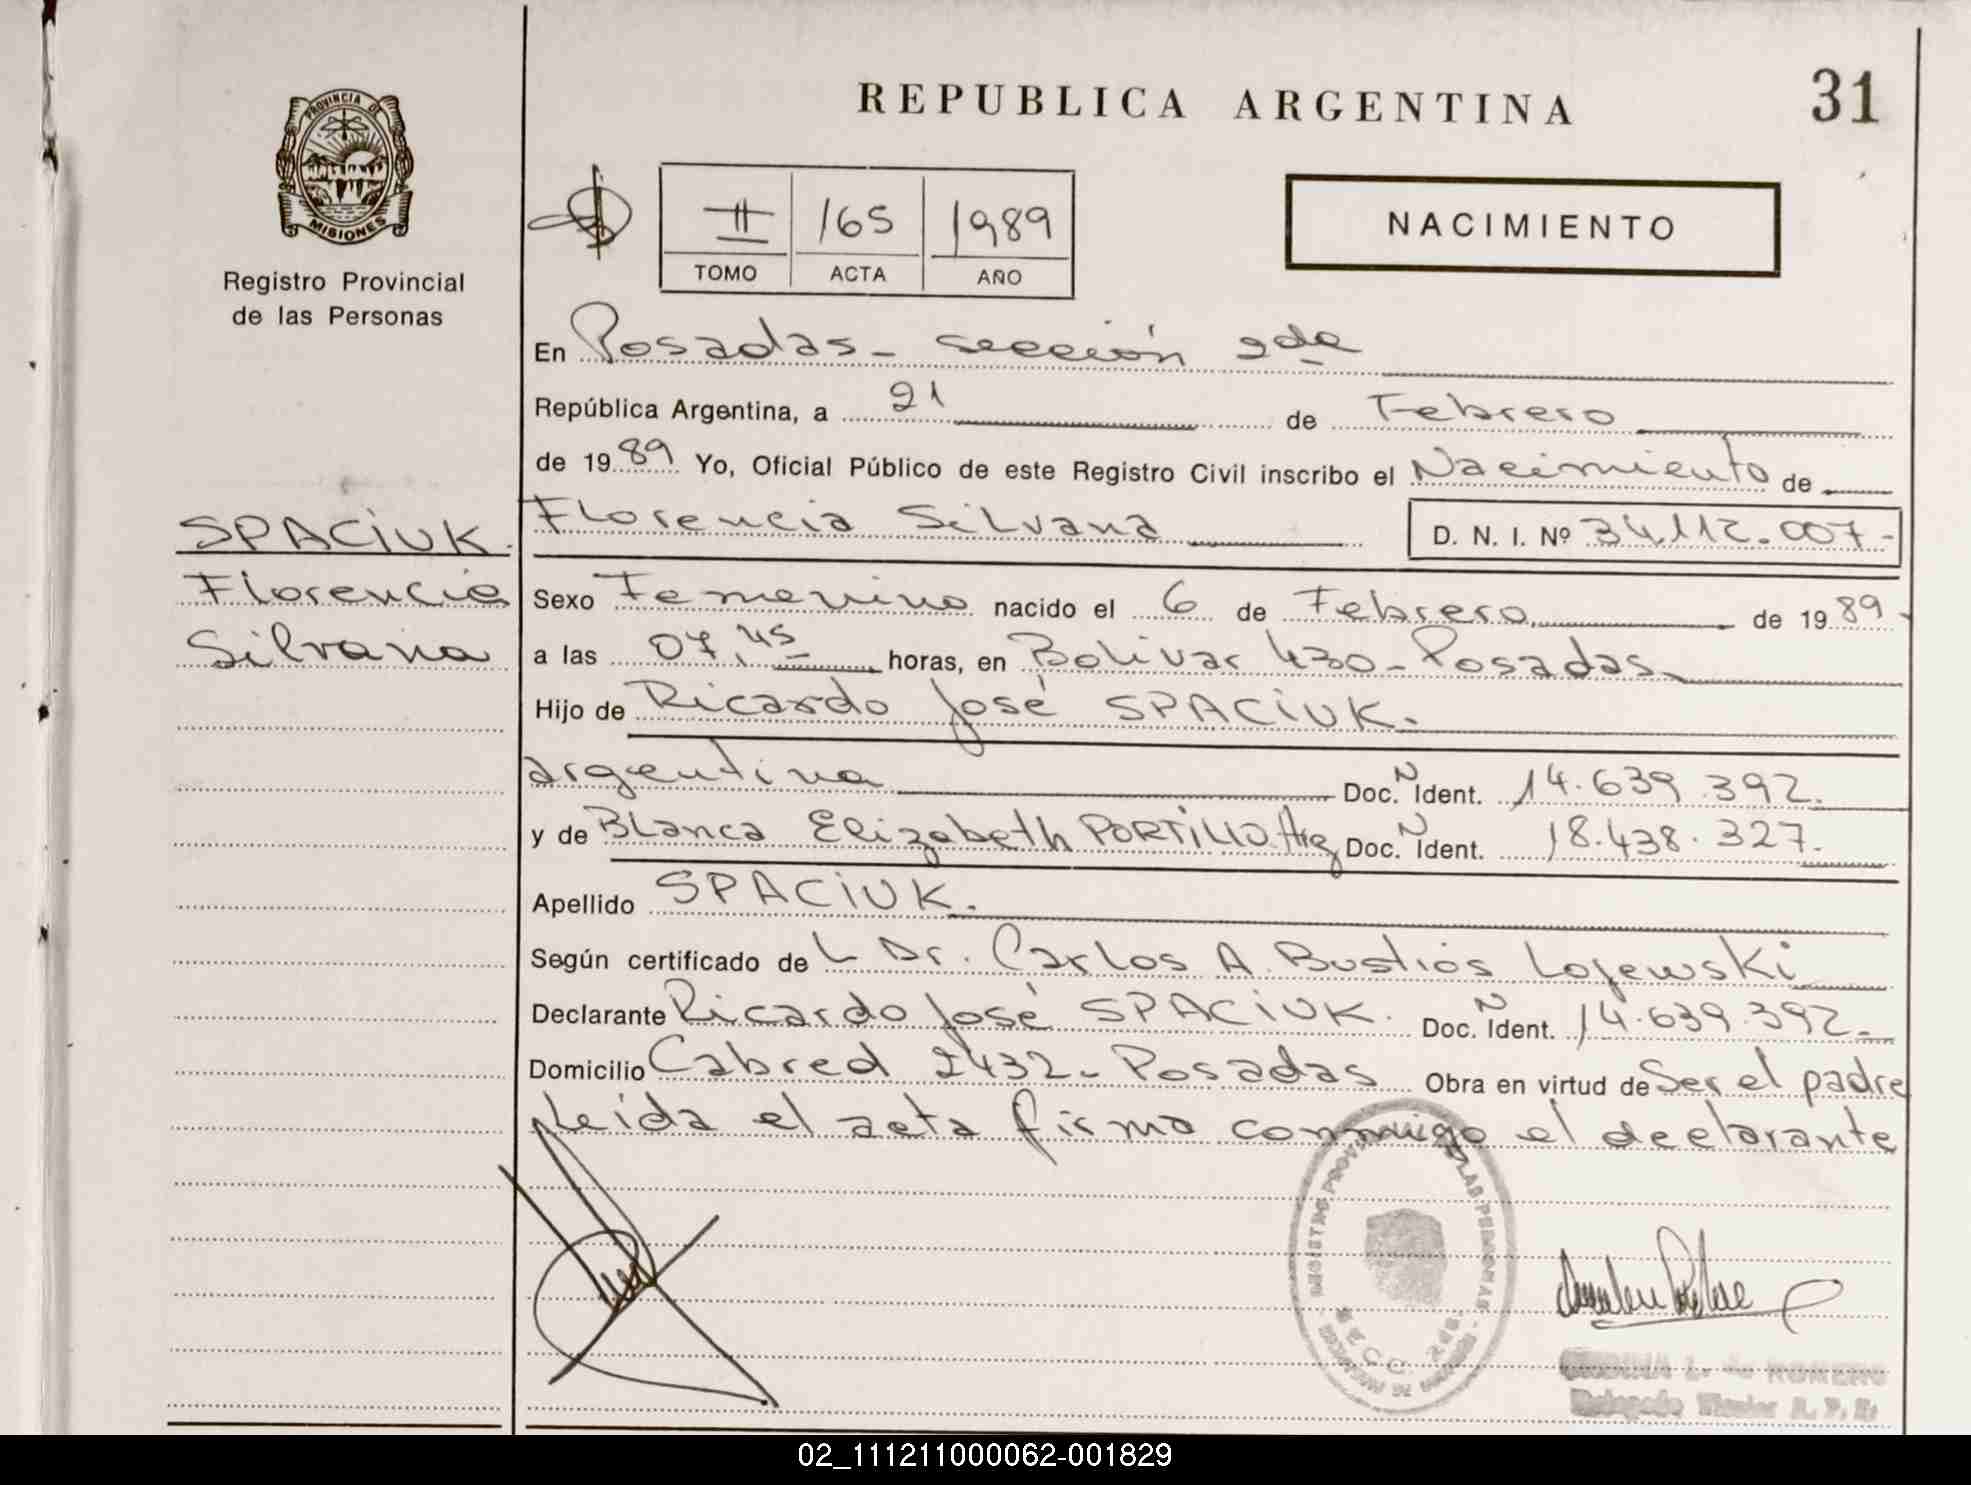 REPUBLICA ARGENTINA
31
PROVINCIA DE
MISIONES
Registro Provincial
de las Personas
II 165 1989
TOMO ACTA AÑO
NACIMIENTO
En Posadas - sección 2da
República Argentina, a 21 de Febrero
de 1989 Yo, Oficial Público de este Registro Civil inscribo el Nacimiento de
Florencia Silvana D. N. I. Nº 34.112.007-
SPACIUK.
Florencia
Silvana
Sexo Femenino nacido el 6 de Febrero de 1989-
a las 07,45 horas, en Bolivar 430 - Posadas
Hijo de Ricardo José SPACIUK.
argentina Doc. N Ident. 14.639.392.
y de Blanca Elizabeth PORTILLO. Arg Doc. N Ident. 18.438.327.
Apellido SPACIUK.
Según certificado de L Dr. Carlos A. Bustios Lojewski
Declarante Ricardo José SPACIUK. Doc. N Ident. 14.639.392-
Domicilio Cabred 2432 - Posadas Obra en virtud de Ser el padre
Leida el acta firma conmigo el declarante
REGISTRO PROVINCIAL DE LAS PERSONAS
SECC. 2da.
L. de MORENO
Delegado Titular R. P. P.
02_111211000062-001829